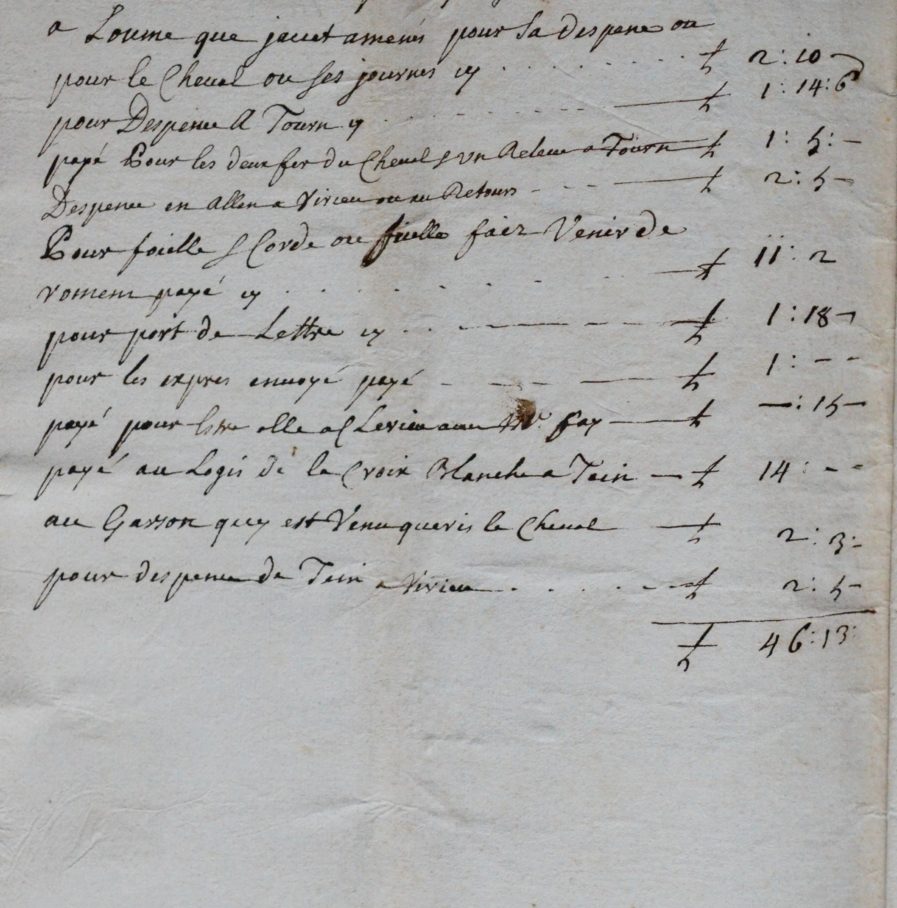 a Lome que jauet amenés pour sa despence ou
pour le Cheval ou ses journes cy £ 2 : 10 -
pour Despence A Tourn cy £ 1 : 14 : 6
payé Pour les deux fer du Cheval & un Releve a Tourn £ 1 : 5 : -
Despence en allan a Virieu ou au Retours £ 2 : 5 -
Pour foielle & Corde ou fielle faiz Venir de
payé cy £ 11 : 2
pour port de Lettre cy £ 1 : 18 -
pour les expres envoyé payé £ 1 : - -
payé pour alle a Mr. fay £ - : 15 -
payé au Logis de la Croix Blanche a Tein £ 14 : - -
au Garson quy est Venu queris le Cheval £ 2 : 3 : -
pour despence de Tein a Virieu £ 2 : 5 -
£ 46 : 13 :